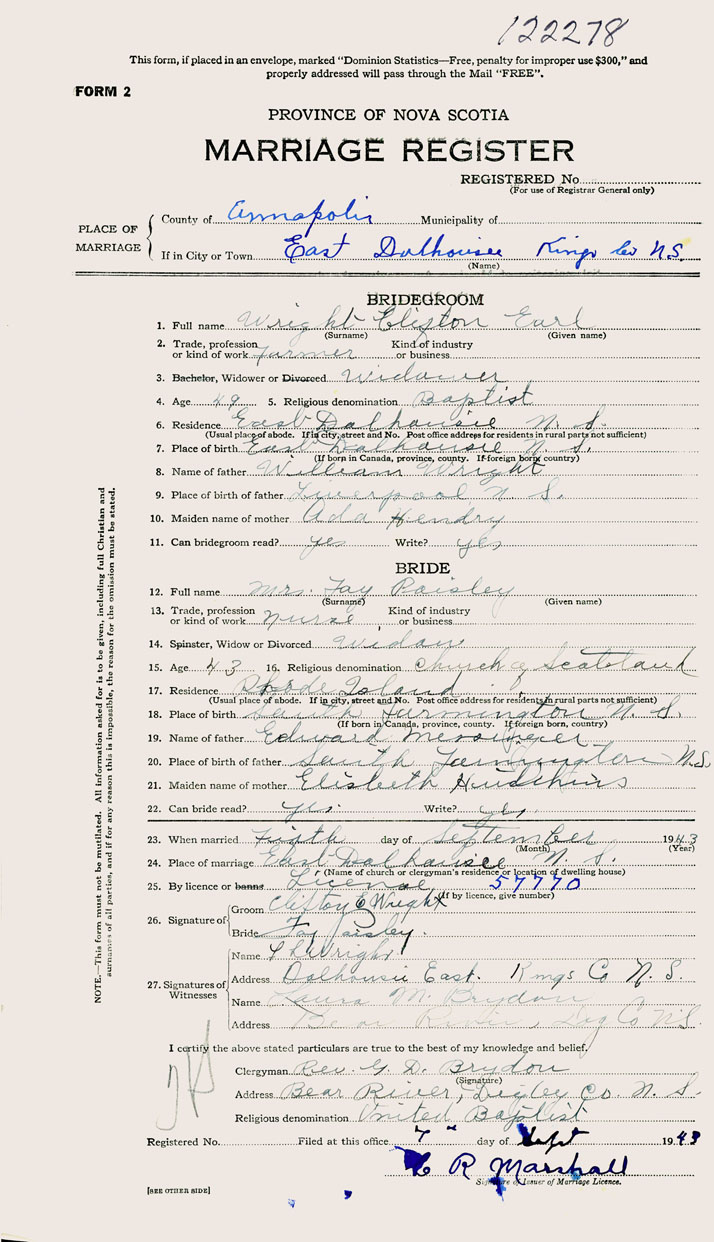 122278
This form, if placed in an envelope, marked “Dominion Statistics—Free, penalty for improper use $300,” and
properly addressed will pass through the Mail “FREE”.
FORM 2
PROVINCE OF NOVA SCOTIA
MARRIAGE REGISTER
REGISTERED No.
(For use of Registrar General only)
PLACE OF MARRIAGE
County of Annapolis Municipality of
If in City or Town East Dalhousie Kings Co N.S.
(Name)
BRIDEGROOM
1. Full name Wright Clifton Earl
(Surname) (Given name)
2. Trade, profession or kind of work farmer Kind of industry or business
3. Bachelor, Widower or Divorced Widower
4. Age 49 5. Religious denomination Baptist
6. Residence East Dalhousie N. S.
(Usual place of abode. If in city, street and No. Post office address for residents in rural parts not sufficient)
7. Place of birth East Dalhousie N. S.
(If born in Canada, province, county. If foreign born country)
8. Name of father William Wright
9. Place of birth of father Liverpool N. S.
10. Maiden name of mother Ada Hendry
11. Can bridegroom read? yes Write? yes
BRIDE
12. Full name Mrs. Fay Paisley
(Surname) (Given name)
13. Trade, profession or kind of work nurse Kind of industry or business
14. Spinster, Widow or Divorced Widow
15. Age 43 16. Religious denomination Church of Scotland
17. Residence Rhode Island
(Usual place of abode. If in city, street and No. Post office address for residents in rural parts not sufficient)
18. Place of birth South Farmington N. S.
(If born in Canada, province, county. If foreign born, country)
19. Name of father Edward
20. Place of birth of father South Farmington N.S.
21. Maiden name of mother Elisbeth Hutchins
22. Can bride read? yes. Write? yes
23. When married day of September 1943
(Month) (Year)
24. Place of marriage East Dalhousie N. S.
(Name of church or clergyman's residence or location of dwelling house)
25. By licence or banns License 57770
(If by licence, give number)
26. Signature of
Groom Clifton E Wright
Bride Fay Paisley.
27. Signatures of Witnesses
Name Wright
Address Dalhousie East. Kings Co N. S.
Name Laura M. Brydon
Address Bear River, Dig Co N.S
I certify the above stated particulars are true to the best of my knowledge and belief.
Clergyman Rev. G. D. Brydon
(Signature)
Address Bear River, Digby Co. N. S.
Religious denomination United Baptist
Registered No. Filed at this office 7" day of Sept 1943
C R Marshall
Signature of Issuer of Marriage Licence.
[SEE OTHER SIDE]
NOTE.—This form must not be mutilated. All information asked for is to be given, including full Christian and
surnames of all parties, and if for any reason this is impossible, the reason for the omission must be stated.